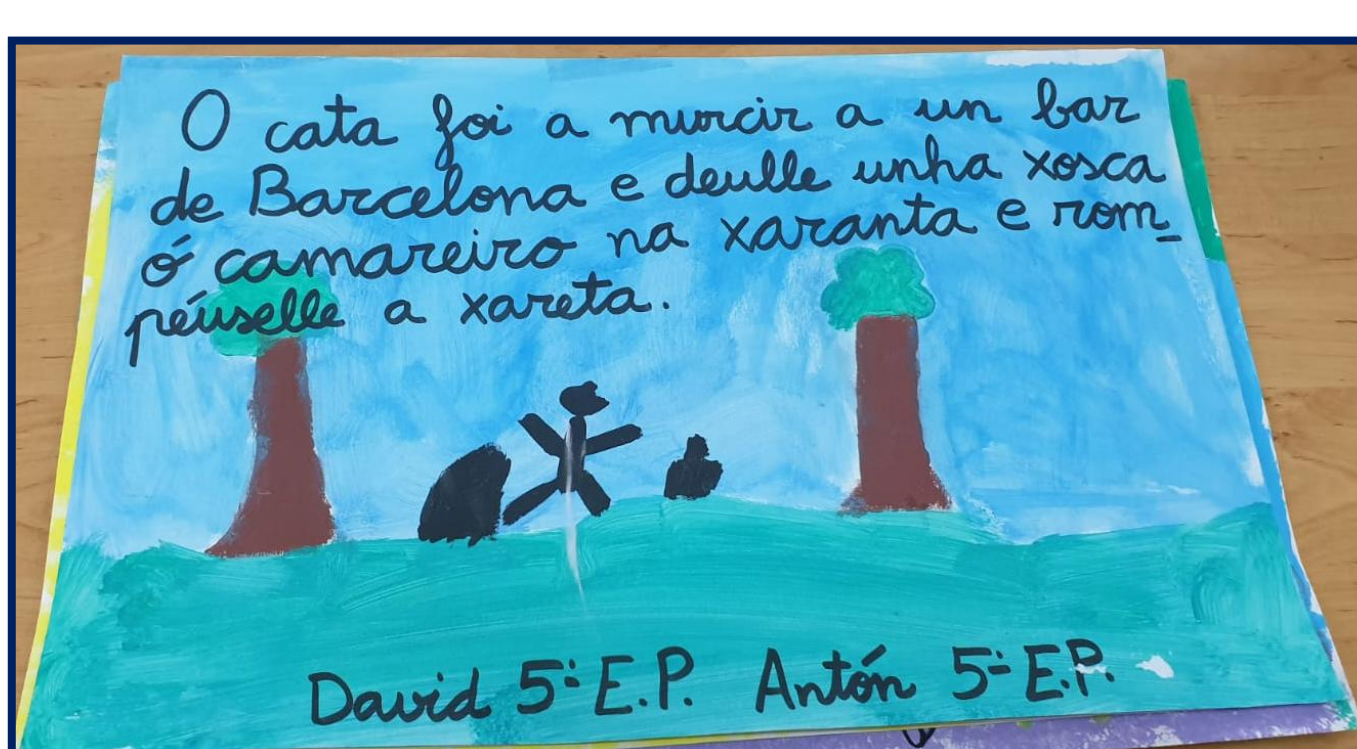 O cata foi a murcir a un bar
de Barcelona e deulle unha xosca
ó camareiro na xaranta e rom_
péuselle a xareta.
David 5º E.P. Antón 5º E.P.